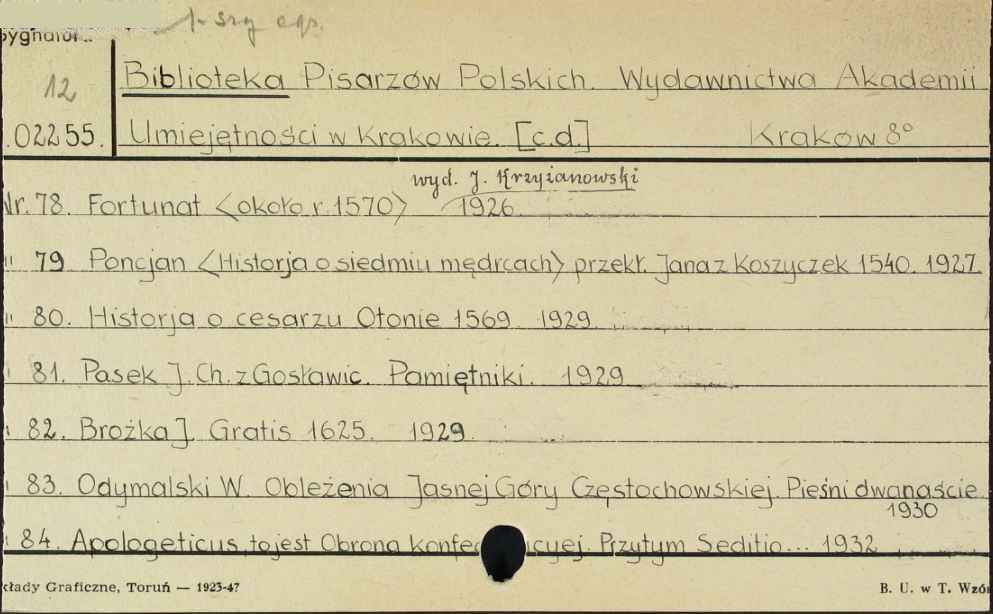 1-szy egz.
Sygnatura
12
02255.
Biblioteka Pisarzów Polskich. Wydawnictwo Akademii
Umiejętności w Krakowie. [c.d.] Kraków 8°
wyd. J. Krzyżanowski
Nr. 78. Fortunat <około r. 1570> 1926.
" 79 Poncjan <Historja o siedmiu mędrcach> przekł. Jana z Koszyczek 1540. 1927.
" 80. Historja o cesarzu Otonie 1569 1929.
" 81. Pasek J. Ch. z Gosławic. Pamiętniki. 1929
" 82. Brożka J. Gratis 1625. 1929.
" 83. Odymalski W. Oblężenia Jasnej Góry Częstochowskiej. Pieśni dwanaście.
1930
" 84. Apologeticus, to jest Obrona Konfe cyej. Przytym Seditio... 1932
kłady Graficzne, Toruń — 1923-47
B. U. w T. Wzór